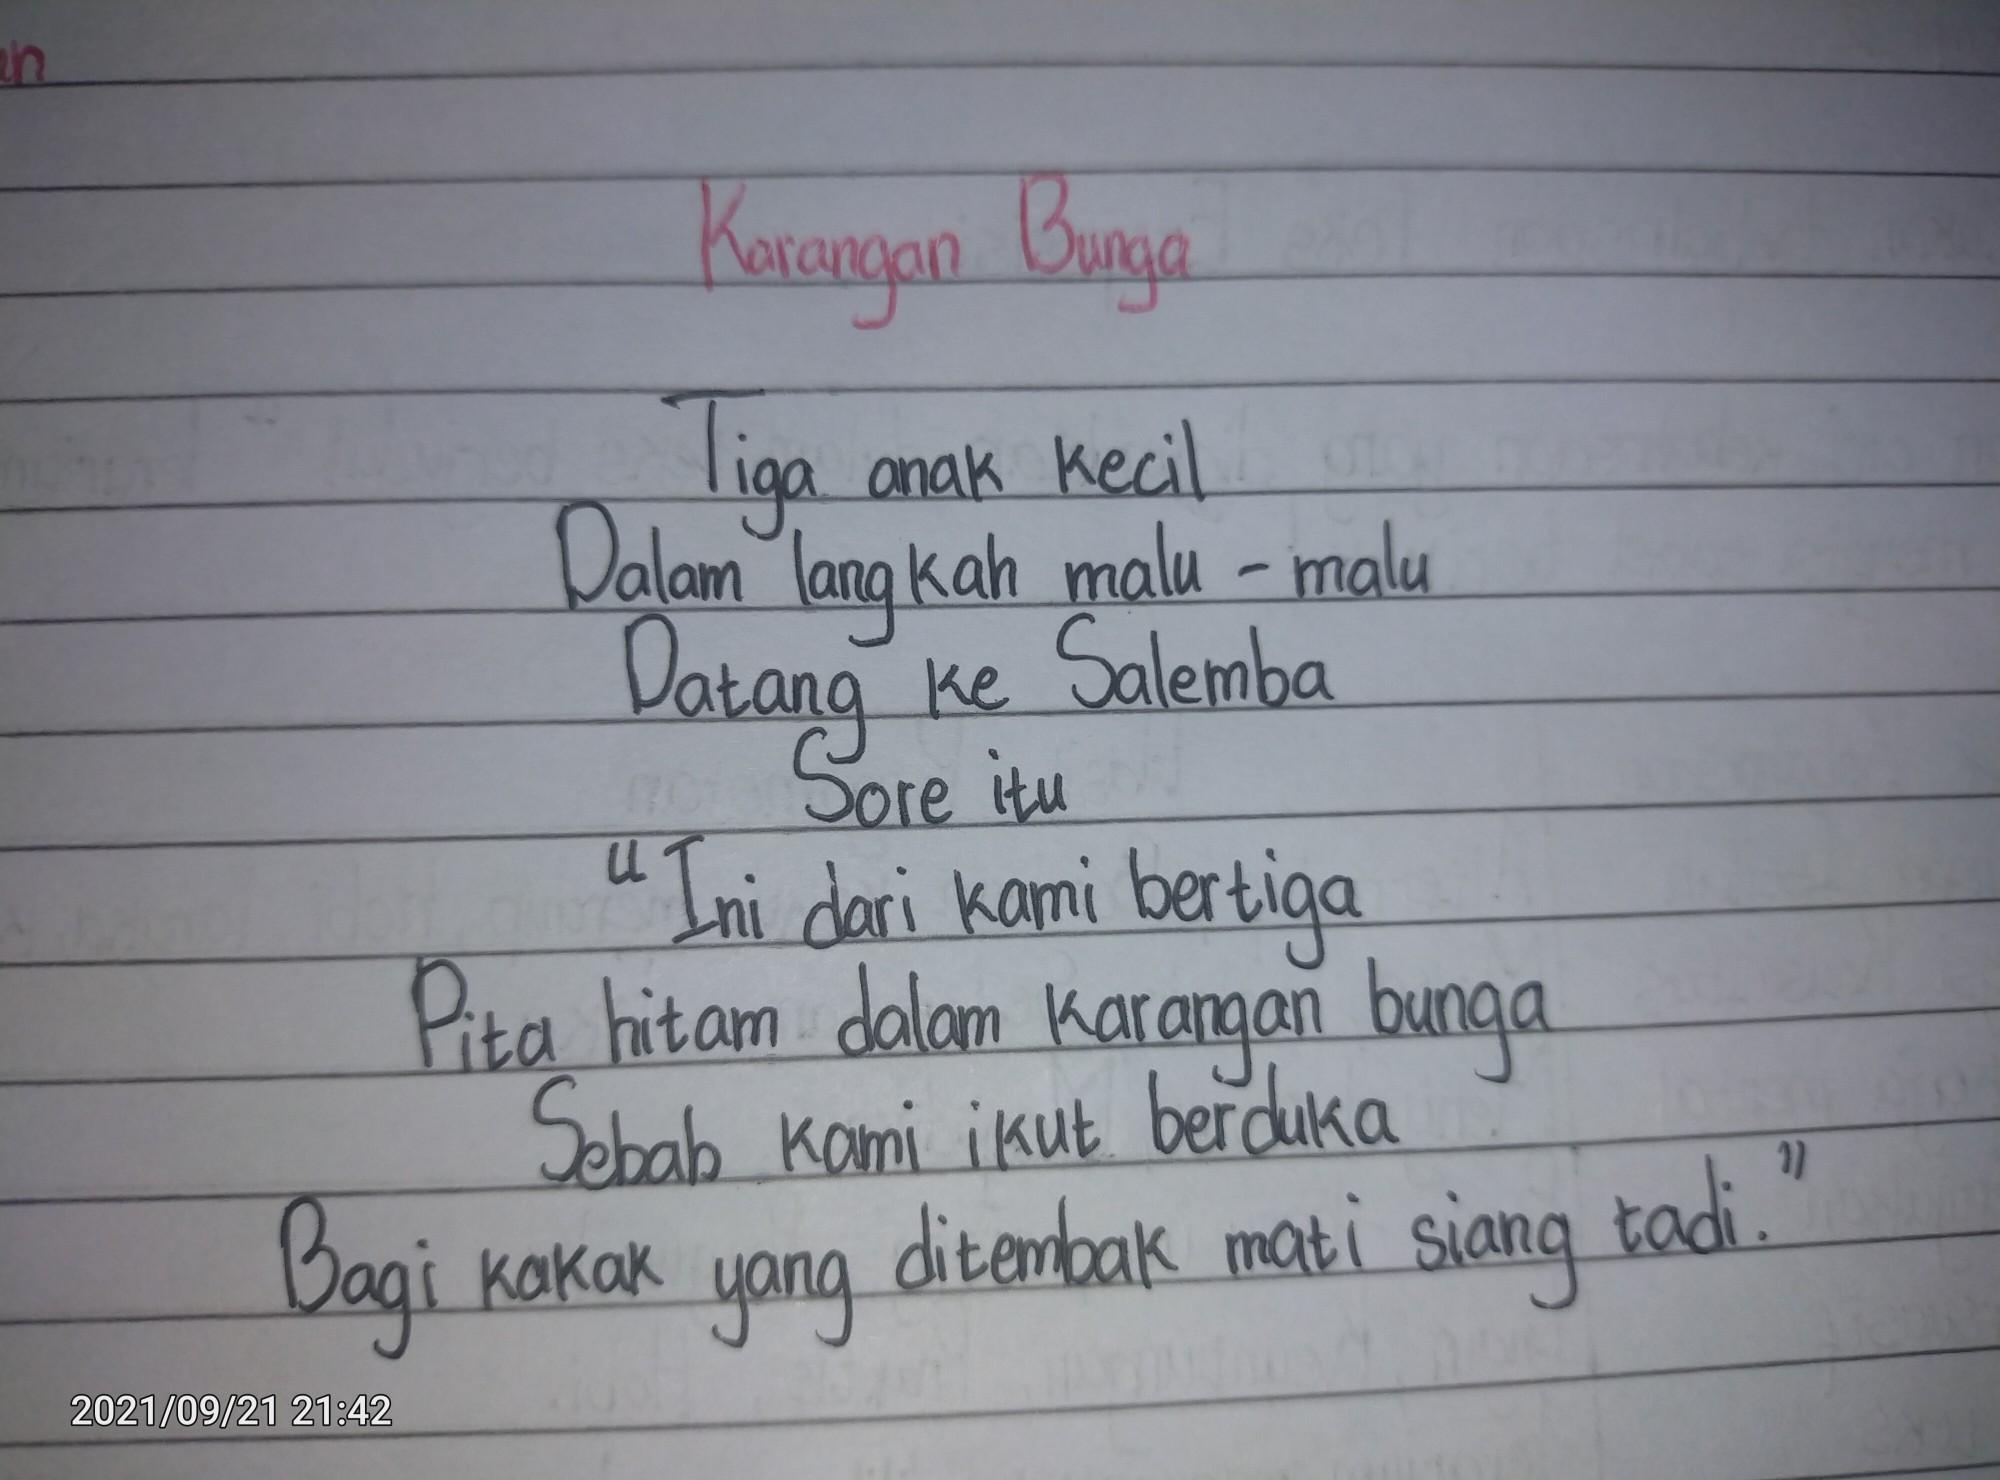 Karangan Bunga
Tiga anak kecil
Dalam langkah malu - malu
Datang ke Salemba
Sore itu
“Ini dari kami bertiga
Pita hitam dalam karangan bunga
Sebab kami ikut berduka
Bagi kakak yang ditembak mati siang tadi.”
2021/09/21 21:42